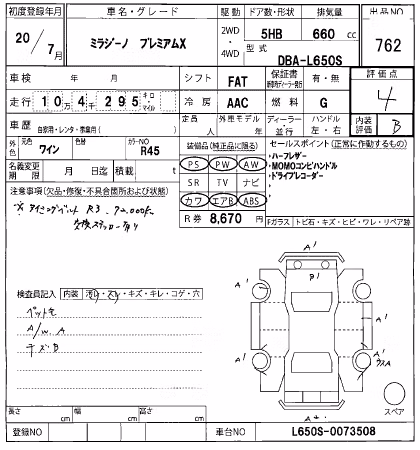 初度登録年月 車名・グレード 駆動 ドア数・形状 排気量 出品NO
20 / 7月 ミラジーノ プレミアムX 2WD・4WD 5HB 660 cc 762
型式 DBA-L650S
車検 年 月 シフト FAT 保証書 評価点
走行 10万4千295 キロ・マイル 冷房 AAC 燃料 G 4
車歴 自家用・レンタ・事業用( ) 定員 人 外車モデル 年 ディーラー・並行 ハンドル 左・右 内装評価 B
外色 元色 ワイン 色替 カラーNO R45
装備品(純正品に限る)
セールスポイント(正常に作動するもの)
PS PW AW
・ハーフレザー
・MOMOコンビハンドル
・ドライブレコーダー
名義変更期限 月 日迄 積載 t
SR TV ナビ
カワ エアB ABS
注意事項(欠品・修復・不具合箇所および状態)
R券 8,670 円
※ タイミングベルト R3. 72,000K
交換ステッカー有り
Fガラス トビ石・キズ・ヒビ・ワレ・リペア跡
検査員記入 内装 汚レ・スレ・キズ・キレ・コゲ・穴
ペット毛
A/W A
キズB
A' A'
B'
A' A'
A' A'
ウスA
スペア
長さ cm 幅 cm 高さ cm
登録NO 車台NO L650S-0073508